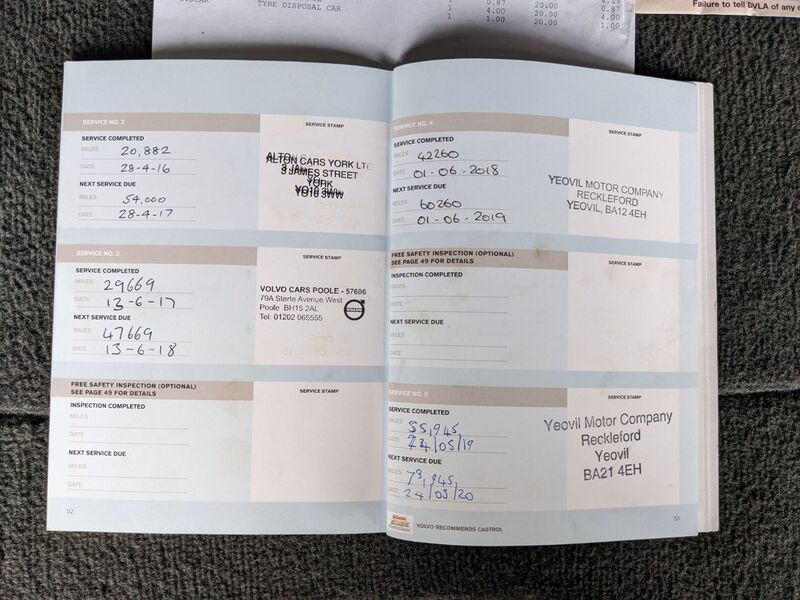 TYRE DISPOSAL CAR
1 0.87 20.00 0.87
1 4.00 20.00 4.00
1 1.00 20.00 1.00
Failure to tell DVLA of any
SERVICE NO. 2
SERVICE STAMP
SERVICE COMPLETED
MILES 20,882
DATE 29-4-16
NEXT SERVICE DUE
MILES 54,000
DATE 28-4-17
ALTON
ALTON CARS YORK LTD
3 JAMES STREET
YORK
YO10 3WW
SERVICE NO. 3
SERVICE STAMP
SERVICE COMPLETED
MILES 29669
DATE 13-6-17
NEXT SERVICE DUE
MILES 47669
DATE 13-6-18
VOLVO CARS POOLE - 57606
79A Sterte Avenue West
Poole BH15 2AL
Tel: 01202 065555
VOLVO
FREE SAFETY INSPECTION (OPTIONAL)
SEE PAGE 49 FOR DETAILS
SERVICE STAMP
INSPECTION COMPLETED
MILES
DATE
NEXT SERVICE DUE
MILES
DATE
52
SERVICE NO. 4
SERVICE STAMP
SERVICE COMPLETED
MILES 42260
DATE 01-06-2018
NEXT SERVICE DUE
MILES 60260
DATE 01-06-2019
YEOVIL MOTOR COMPANY
RECKLEFORD
YEOVIL, BA12 4EH
FREE SAFETY INSPECTION (OPTIONAL)
SEE PAGE 49 FOR DETAILS
SERVICE STAMP
INSPECTION COMPLETED
MILES
DATE
NEXT SERVICE DUE
MILES
DATE
SERVICE NO. 5
SERVICE STAMP
SERVICE COMPLETED
MILES 55,945
DATE 24/05/19
NEXT SERVICE DUE
MILES 73,945
DATE 24/05/20
Yeovil Motor Company
Reckleford
Yeovil
BA21 4EH
Castrol
VOLVO RECOMMENDS CASTROL
53